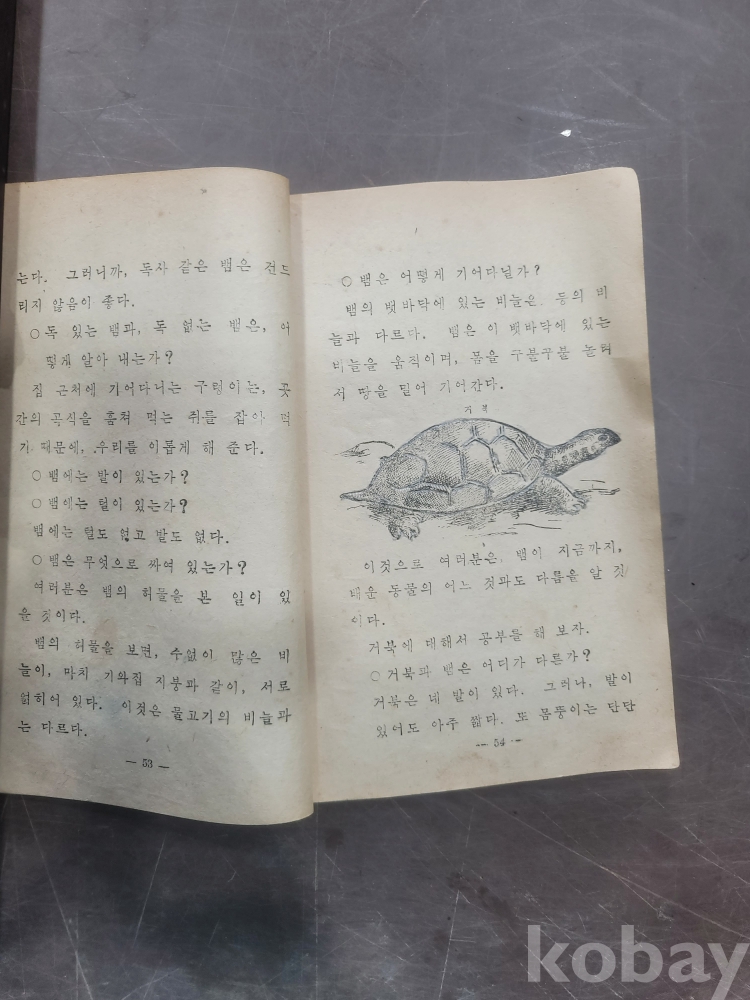 는다. 그러니까, 독사 같은 뱀은 건드
리지 않음이 좋다.
○독 있는 뱀과, 독 없는 뱀은, 어
떻게 알아 내는가?
집 근처에 기어다니는 구렁이는, 곳
간의 곡식을 훔쳐 먹는 쥐를 잡아 먹
기 때문에, 우리를 이롭게 해 준다.
○뱀에는 발이 있는가?
○뱀에는 털이 있는가?
뱀에는 털도 없고 발도 없다.
○뱀은 무엇으로 싸여 있는가?
여러분은 뱀의 허물을 본 일이 있
을 것이다.
뱀의 허물을 보면, 수없이 많은 비
늘이, 마치 기와집 지붕과 같이, 서로
덮히어 있다. 이것은 물고기의 비늘과
는 다르다.
— 53 —
○뱀은 어떻게 기어다닐가?
뱀의 뱃바닥에 있는 비늘은 등의 비
늘과 다르다. 뱀은 이 뱃바닥에 있는
비늘을 움직이며, 몸을 구불꾸불 놀려
서 땅을 밀어 기어간다.
거북
이것으로 여러분은 뱀이 지금까지,
배운 동물의 어느 것과도 다름을 알 것
이다.
거북에 대해서 공부를 해 보자.
○거북과 뱀은 어디가 다른가?
거북은 네 발이 있다. 그러나, 발이
있어도 아주 짧다. 또 몸뚱이는 단단
— 54 —
kobay